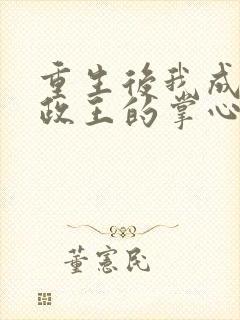 重生後我成
政主的掌心
董憲民